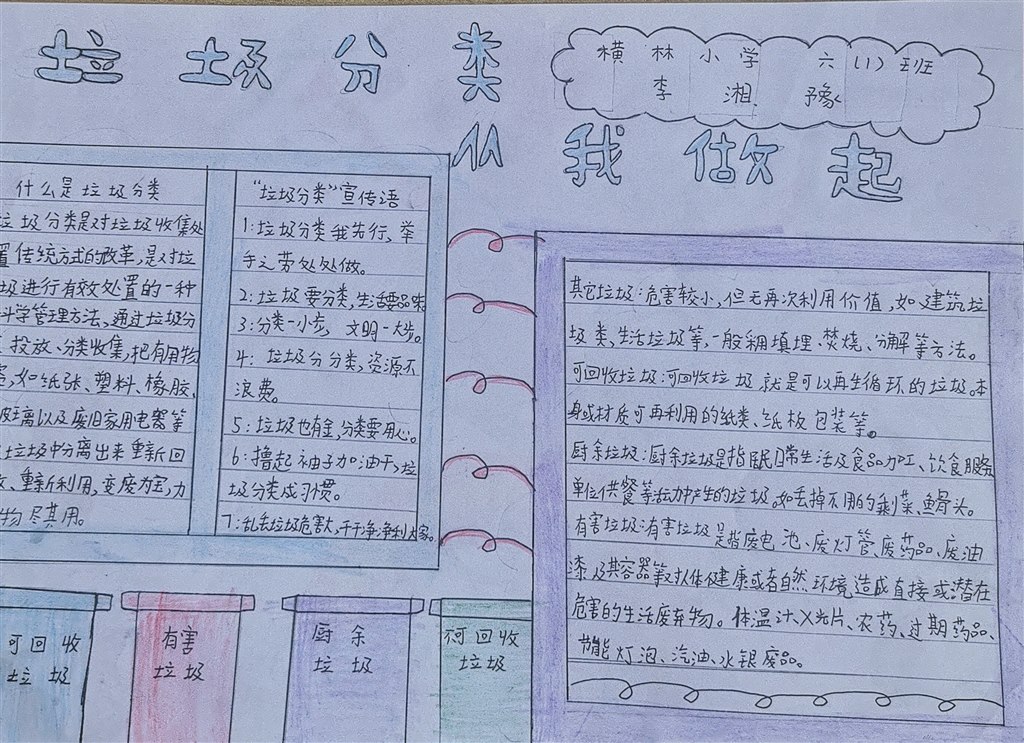 垃圾分类
从我做起
横林小学 六(1)班
李湘豫
什么是垃圾分类
垃圾分类是对垃圾收集处
置传统方式的改革,是对垃
圾进行有效处置的一种
科学管理方法,通过垃圾分
投放、分类收集,把有用物
,如纸张、塑料、橡胶,
玻璃以及废旧家用电器等
垃圾中分离出来重新回
、重新利用,变废为宝,力
物尽其用。
“垃圾分类”宣传语
1:垃圾分类我先行,举
手之劳处处做。
2:垃圾要分类,生活要品味
3:分类一小步,文明一大步。
4:垃圾分分类,资源不
浪费。
5:垃圾也有金,分类要用心。
6:撸起袖子加油干,垃
圾分类成习惯。
7:乱丢垃圾危害大,干干净净利大家。
其它垃圾:危害较小,但无再次利用价值,如建筑垃
圾类,生活垃圾等,一般采用填埋、焚烧、分解等方法。
可回收垃圾:可回收垃圾就是可以再生循环的垃圾。本
身或材质可再利用的纸类、纸板包装等。
厨余垃圾:厨余垃圾是指居民日常生活及食品加工、饮食服务
单位供餐等活动中产生的垃圾,如丢掉不用的剩菜、鱼骨头。
有害垃圾:有害垃圾是指废电池、废灯管、废药品、废油
漆及其容器等对人体健康或者自然环境造成直接或潜在
危害的生活废弃物。体温计、X光片、农药、过期药品、
节能灯泡、汽油、水银废品。
可回收
垃圾
有害
垃圾
厨余
垃圾
回收
垃圾